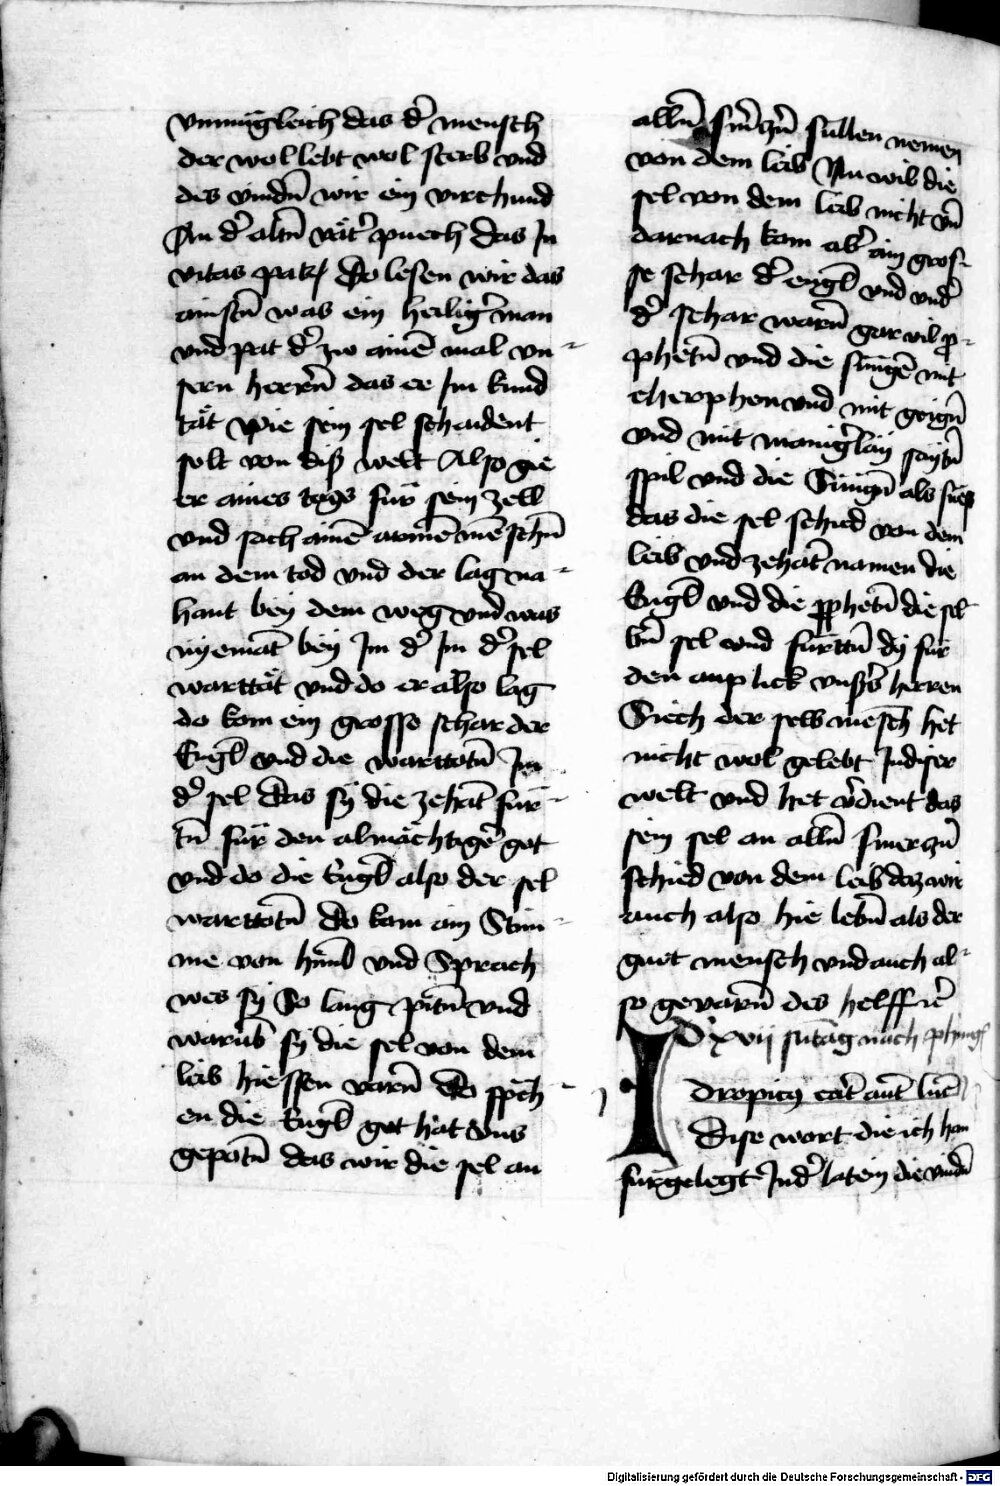 vnmügleich das d' mensch
der wol lebt wol sterb vnd
des vindn̄ wir ein vrchund
An d' altn̄ vät' puech das In
vitas pat℞ Do lesen wir das
ainstn̄ was ein heilig' man
vnd pat d' zw ainē mal vn-
sern herrn̄ das er Im kund
tät wie sein sel schaident
solt von diser welt Also gie
er aines tags für sein zell
vnd sach ainē armēn mēschn̄
an dem tod vnd der lag na-
hant bey dem weg vnd was
nyemāt bey Im d' Im d' sel
warttät vnd do er also lag
do kom ein grosse schar der
Engl vnd die warttotn̄ Im
d' sel das sy die zehāt für-
tn̄ für den almächtigē got
vnd do die Engl also der sel
warttotn̄ Do kam ain Stim-
me von himl vnd Sprach
wes sy So lang pitn̄ vnd
warūb sy die sel von dem
leib hiessen varn̄ Do sp̄ch-
en die Engl got hat vns
gepotn̄ das wir die sel an
alln̄ sm'czn̄ sullen nemen
von dem leib Nu wil die
sel von dem leib nicht vn̄
darnach kom ab' ain gros-
se schar d' engl vnd vnd'
d' schar warn̄ gar vil p̄-
phetn̄ vnd die sungē mit
cherpphen vnd mit geign̄
vnd mit manig'lay saytn̄
spil vnd die Sungn̄ als sues
das die sel schied von dem
leib vnd zehāt namen die
Engl vnd die p̄phetn̄ die sel
bn̄ sel vnd furttn̄ dy für
den anplick vnsers herren
Siech der selb mēsch het
nicht wol gelebt In diser
welt vnd het v'dient das
sein sel an alln̄ smerczn̄
schied von dem leib daz wir
auch also hie lebn̄ als der
guet mensch vnd auch al-
so gevarn̄ des helff
D' xvij sūtag nach phingst
Idropicus
Dise wort die ich han
furgelegt In d' latein die vindn̄